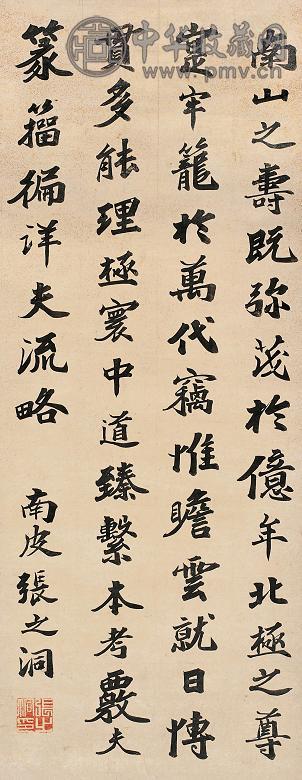 中华收藏网
www.pmv.cn
南山之壽既弥茂於億年北極之尊
寔牢籠於萬代竊惟瞻雲就日愽
貫多能理極寰中道臻繫本考覈夫
篆籀徧詳夫流略
南皮張之洞
張之洞印